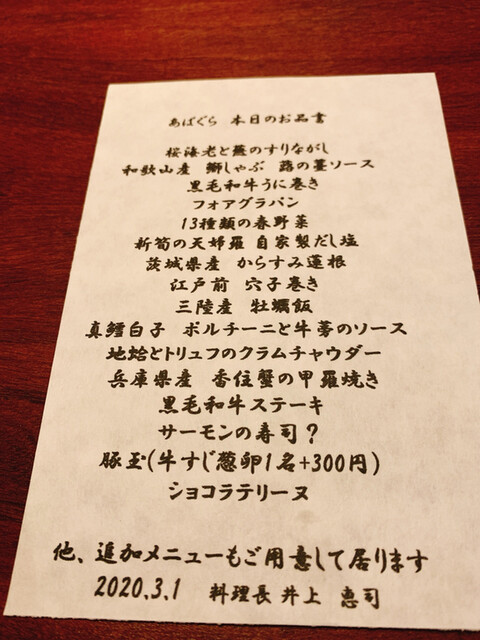 あばぐら 本日のお品書
桜海老と蕪のすりながし
和歌山産 鰤しゃぶ 蕗の薹ソース
黒毛和牛うに巻き
フォアグラパン
13種類の春野菜
新筍の天婦羅 自家製だし塩
茨城県産 からすみ蓮根
江戸前 穴子巻き
三陸産 牡蠣飯
真鱈白子 ポルチーニと牛蒡のソース
地蛤とトリュフのクラムチャウダー
兵庫県産 香住蟹の甲羅焼き
黒毛和牛ステーキ
サーモンの寿司?
豚玉(牛すじ葱卵1名+300円)
ショコラテリーヌ
他、追加メニューもご用意して居ります
2020.3.1 料理長 井上 恵司